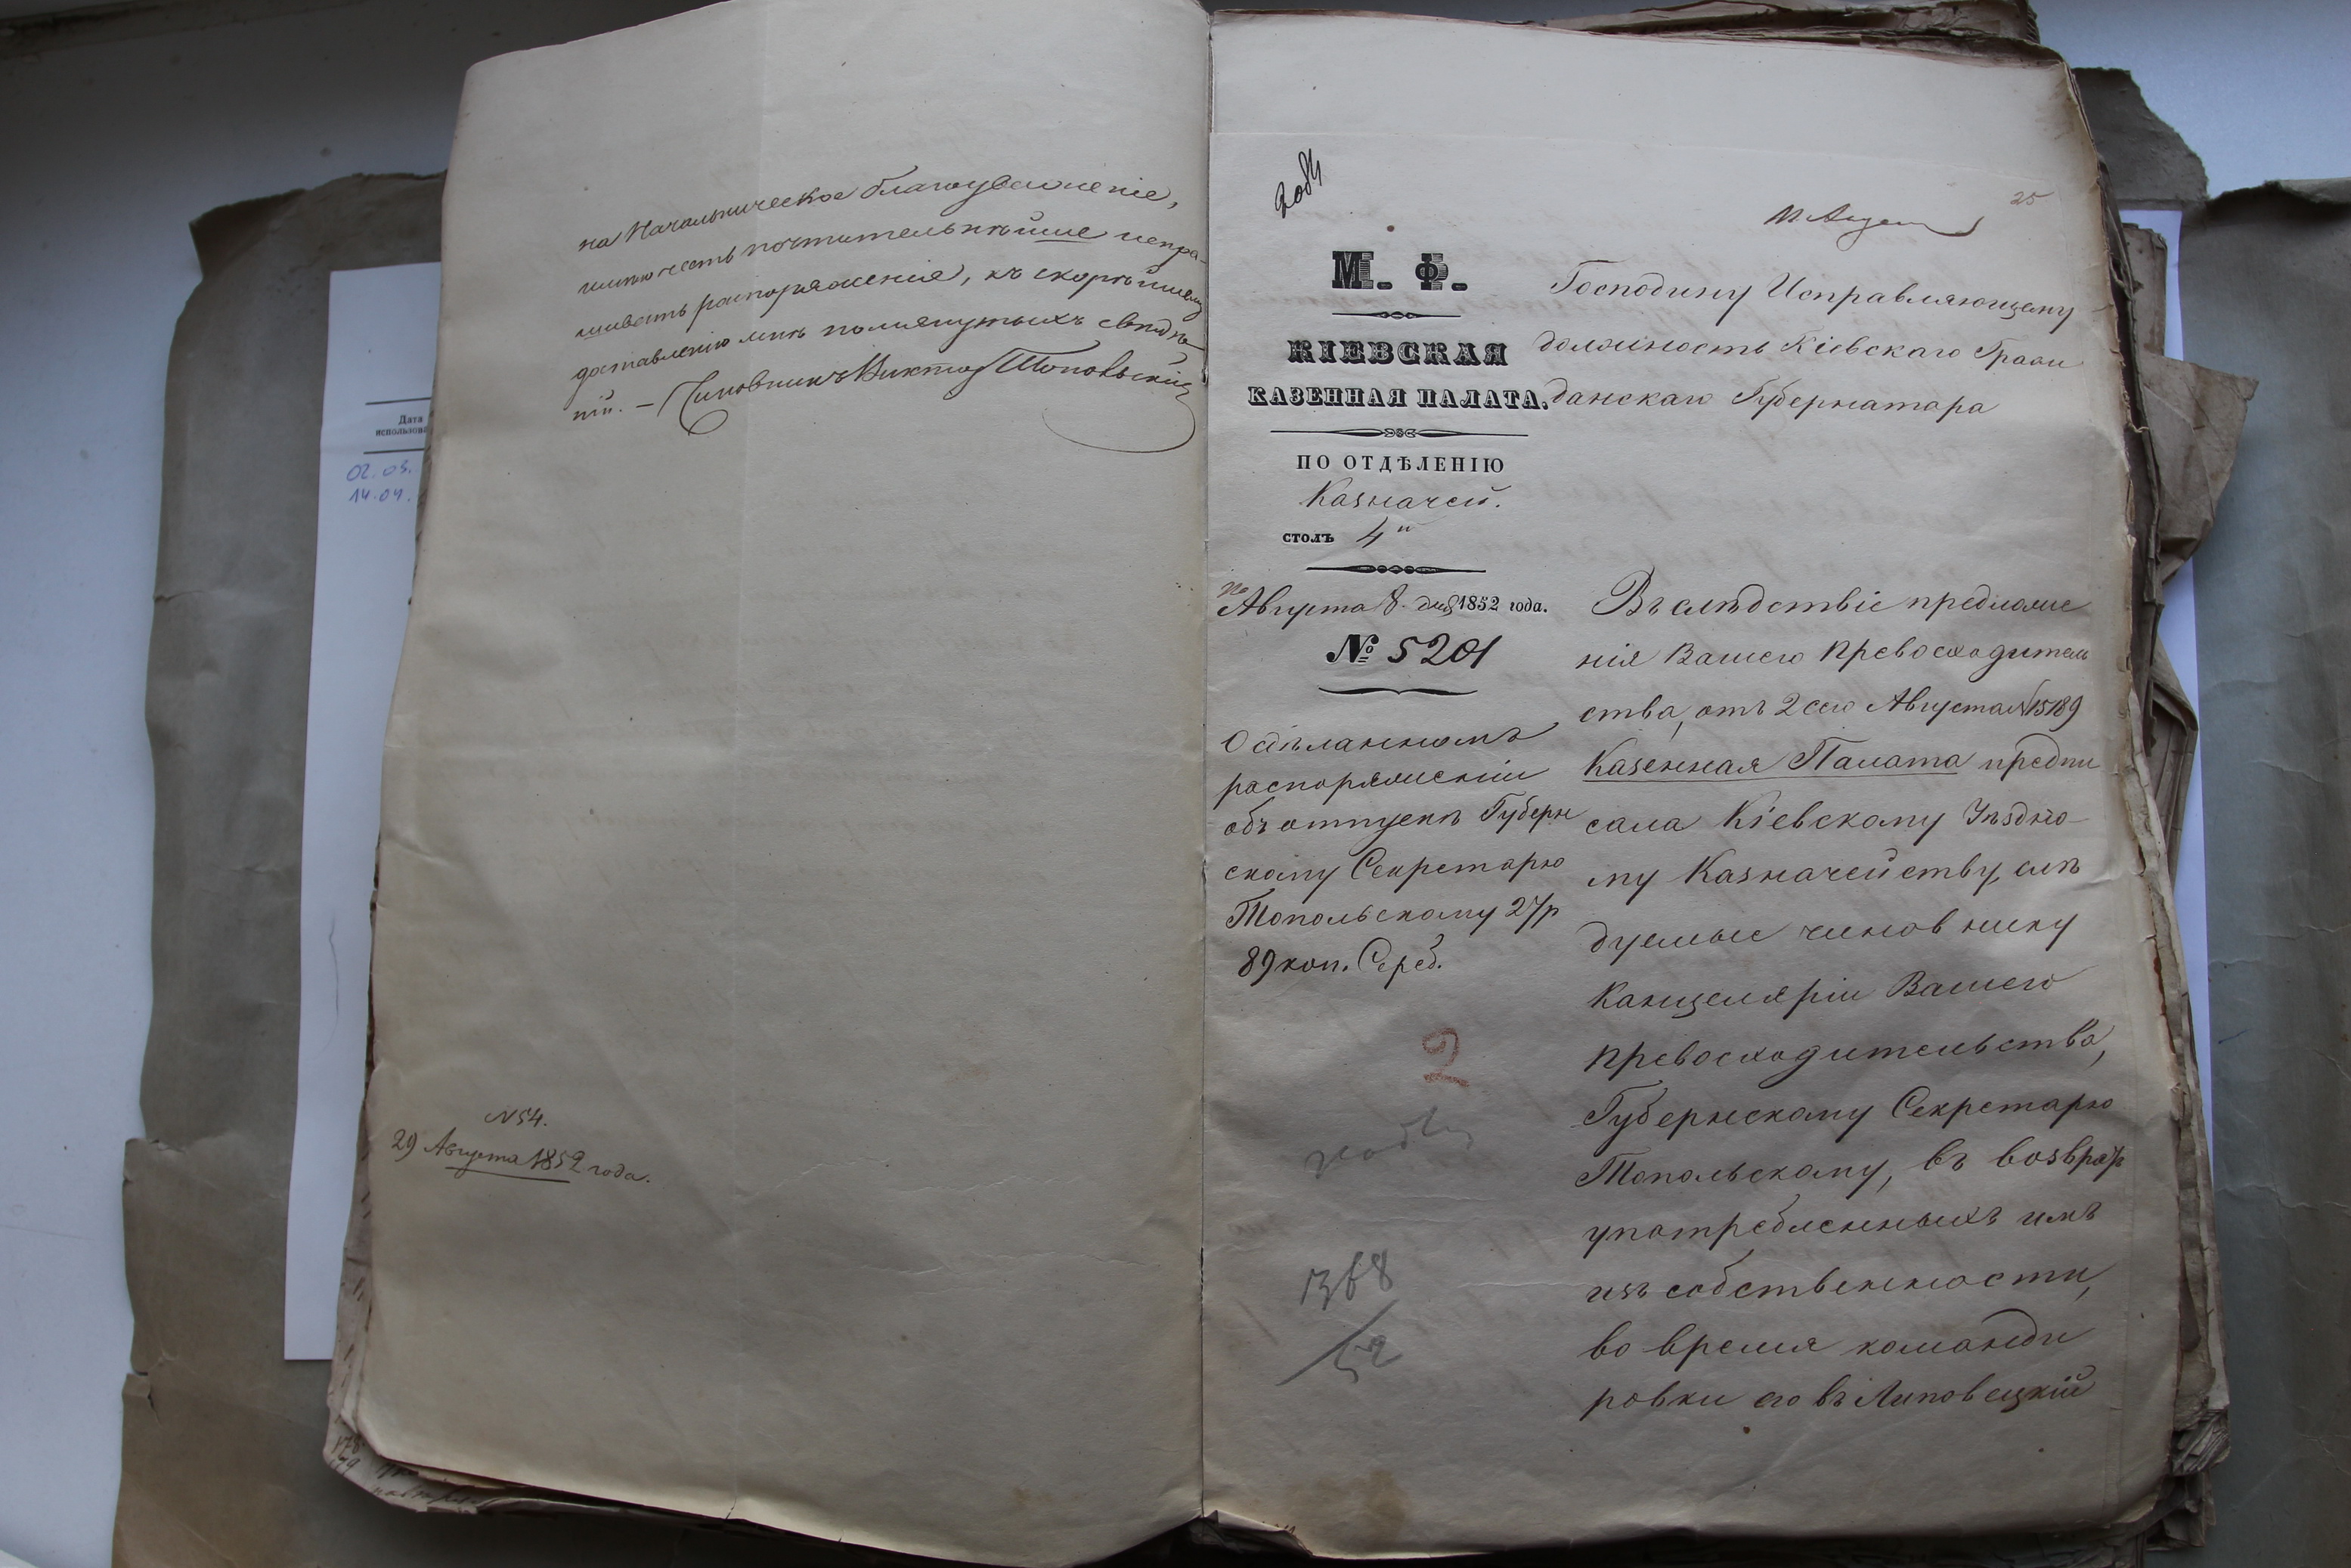 на Начальническое благоуваженіе,
имѣю честь почтительнѣйше испра-
шивать распоряженія, къ скорѣйшему
доставленію мнѣ помянутыхъ свѣдѣ-
ній. — Чиновникъ Викторъ Топольскій
N 54.
29 Августа 1852 года.
Дата
использова
02.03.
14.04.
25
М. Ф.
КІЕВСКАЯ
КАЗЕННАЯ ПАЛАТА.
ПО ОТДѢЛЕНІЮ
Казначей.
столъ 4й
Августа 8 дня 1852 года.
№ 5201
О сдѣланномъ
распоряженіи
объ отпускѣ Губерн
скому Секретарю
Топольскому 27 р
89 коп. Сереб.
2
1368
/52
Господину Исправляющему
должность Кіевскаго Граж
данскаго Губернатора
Въ слѣдствіе предложе
нія Вашего Превосходитель
ства, отъ 2 сего Августа № 15189
Казенная Палата предпи
сала Кіевскому Уѣздно-
му Казначейству, слѣ
дуемые чиновнику
Канцеляріи Вашего
Превосходительства,
Губернскому Секретарю
Топольскому, въ возвратъ
употребленныхъ имъ
изъ собственности,
во время команди
ровки его въ Липовецкій